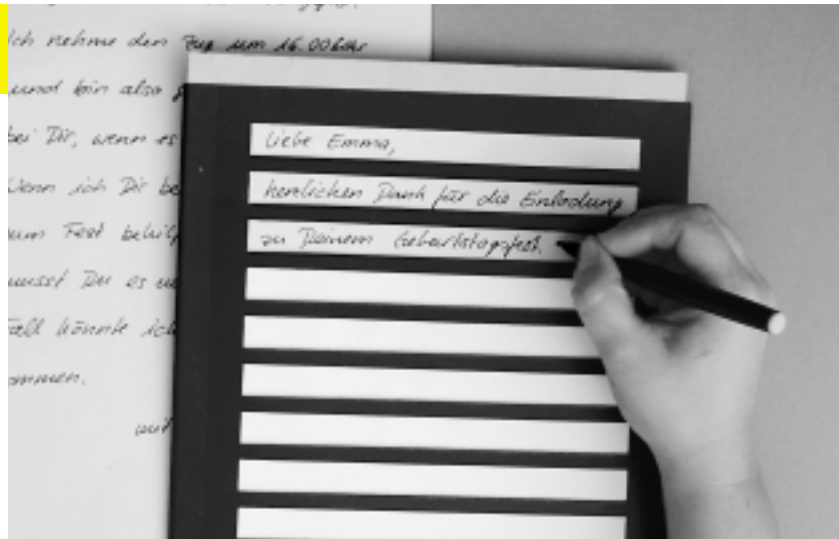 Ich nehme den Zug um 16.00 Uhr
und bin also
bei Dir, wenn es
Wenn ich Dir be
zum Fest behilf
musst Du es
Fall könnte ich
ommen.
mit
Liebe Emma,
herzlichen Dank für die Einladung
zu Deinem Geburtstagsfest.